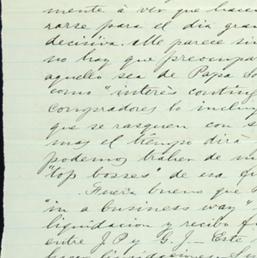 mente á ver que hacen
rarse para el dia gran
decisiva. Me parece sin
no hay que preocupa
aquello sea de Papa So
como "interés conting
compradores lo incluy
que se rasquen con s
mas el tiempo dirá
podemos haber de su
"top bosses" de esa fir
Fuera bueno que
"in a business way"
liquidacion y recibo f
entre J.P y G.J— Este